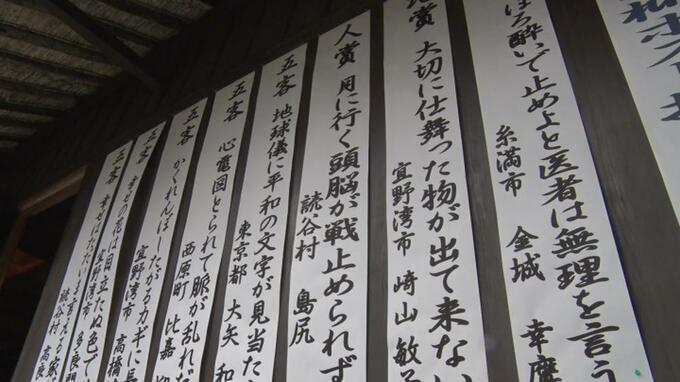 ほろ酔いで止め上と医者は無理を言う
糸満市 金城 幸
賞 大切に仕舞った物が出て来ない
宜野湾市 崎山 敏子
人賞 月に行く頭脳が戦止められず
読谷村 島尻
五客 地球儀に平和の文字が見当た
東京都 大矢 和
五客 心電図とられて脈が乱れだ
西原町 比嘉
五客 かくれんぼしたがるカギに長
宜野湾市 高橋
五客 幸せの花は目立たぬ色で
宜野湾市 多良間
五客 幸せはただいまと言える
読谷村 高良